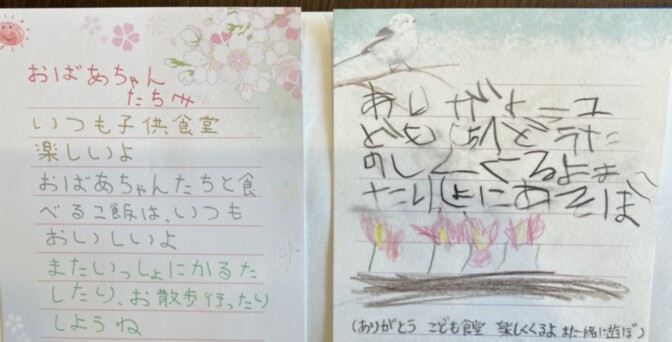 おばあちゃん
たちへ
いつも子供食堂
楽しいよ
おばあちゃんたちと食
べるご飯は、いつも
おいしいよ
またいっしょにかるた
したり、お散歩行ったり
しようね
ありがとーユ
どもしちくどうたに
のしくくるよま
たいしょにあそぼ
(ありがとう こども食堂 楽しくくるよ また一緒に遊ぼ)